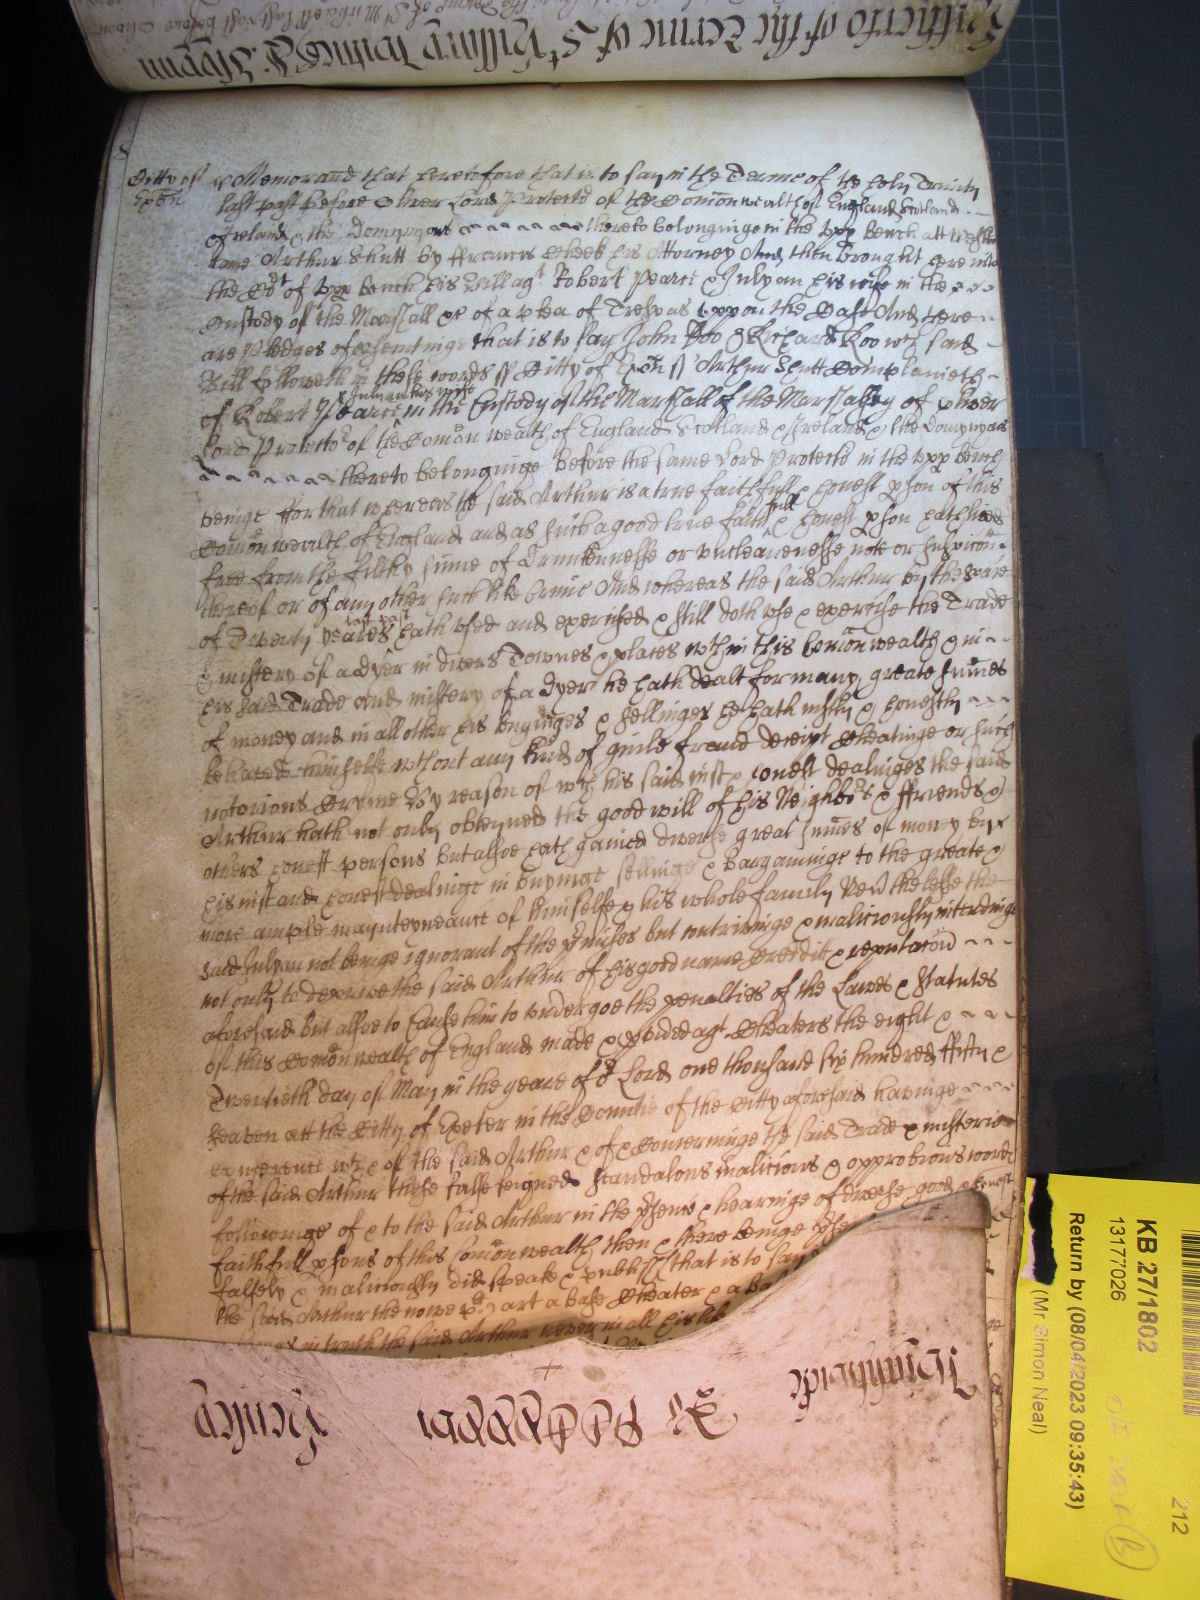 Hitherto of the Terme of St Hillary Wittnes
Citty of
Exōn
Memorand that heretofore that is to say in the Terme of the holy Trinity
last past before Oliver Lord Protector of the Comōn wealth of England Scotland
& Ireland & the Dominyons thereto belonginge in the upp Bench att Westm
came Arthur Shutt by ffrancis his Attorney And then brought here into
the Cort of upp bench his Bill agt Robert Pearce & Julyan his wife in the
Custody of the Marshall &c of a plea of Trespas uppon the Case And there
are Pledges of prosecutinge that is to say John Doo & Richard Roo wch said
Bill followeth in these words ss Citty of Exōn ss Arthur Shutt Complaineth
& Julyan his wife
of Robert Pearce in the Custody of the Marshall of the Marshalsey of Oliver
Lord Protector of the Comōn wealth of England Scotland & Ireland & the Dominyons
thereto belonginge before the same Lord Protector in the upp bench
beinge ffor that whereas the said Arthur is a true faithfull & honest pson of this
Comōn wealth of England and as such a good true faithfull & honest pson hath lived
free from the filthy sinne of Drunkennesse or uncleanenesse note or suspicōn
thereof or of any other such like crime And whereas the said Arthur by the space
last past
of Twenty yeares hath used and exercised & still doth use & exercise the Trade
& mistery of a Dyer in divers Townes & places wthin this Comōn wealth & in
his said Trade and mistery of a Dyer he hath dealt for many great summes
of money and in all other his buyinges & sellinges he hath justly & honestly
behaved himselfe wthout any kind of guile fraud deceipt Cheatinge or such
notorious Crime By reason of wch his said just & honest dealinges the said
Arthur hath not only obteyned the good will of his Neighbors & ffriends &
others honest persons but alsoe hath gained diverse great summes of money by
his just and honest dealinge in buyinge sellinge & bargaininge to the greate &
more ample mayntenance of himselfe & his whole family Nevthelesse the
said Julyan not beinge ignorant of the pmisses but contrivinge & maliciously intendinge
not only to deprive the said Arthur of his good name Creditt & reputacōn
aforesaid but alsoe to cause him to undergoe the penalties of the Lawes & Statutes
of this Comōn wealth of England made & pvided agt Cheaters the eight &
Twentieth day of May in the yeare of or Lord one thousand six hundred ffifty &
seaven att the Citty of Exeter in the Countie of the Citty aforesaid havinge
conference wth & of the said Arthur & of & Concerninge the said Trade & misterie
of the said Arthur these false feigned scandalous malicious & opprobrious words
followinge of & to the said Arthur in the psence & hearinge of diverse good & honest
faithfull psons of this Comōn wealth then & there beinge
falsely & maliciously did speake & publish that is to say
the said Arthur the nowe art a base Cheater & a
in truth the said Arthur never in all his life
Wightwick Ro 1802 Henley
KB 27/1802
13177026
Return by (08/04/2023 09:35:43)
(Mr Simon Neal)
212